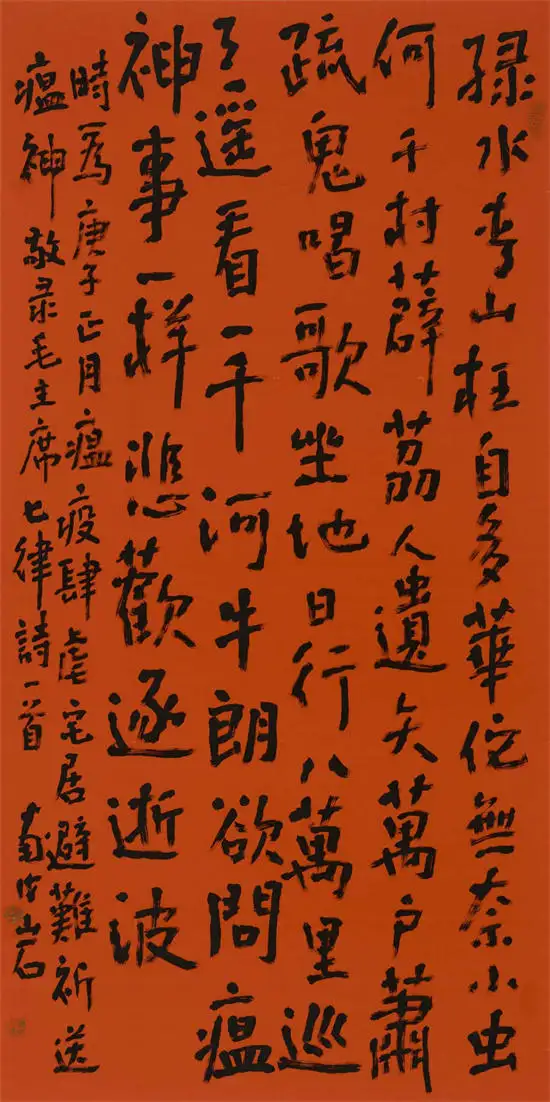 绿水青山枉自多華佗無奈小虫
何千村薜荔人遺矢萬户蕭
疏鬼唱歌坐地日行八萬里巡
天遥看一千河牛朗欲問瘟
神事一样悲歡逐逝波
時為庚子正月瘟疫肆虐宅居避難祈送
瘟神敬录毛主席七律詩一首 山石